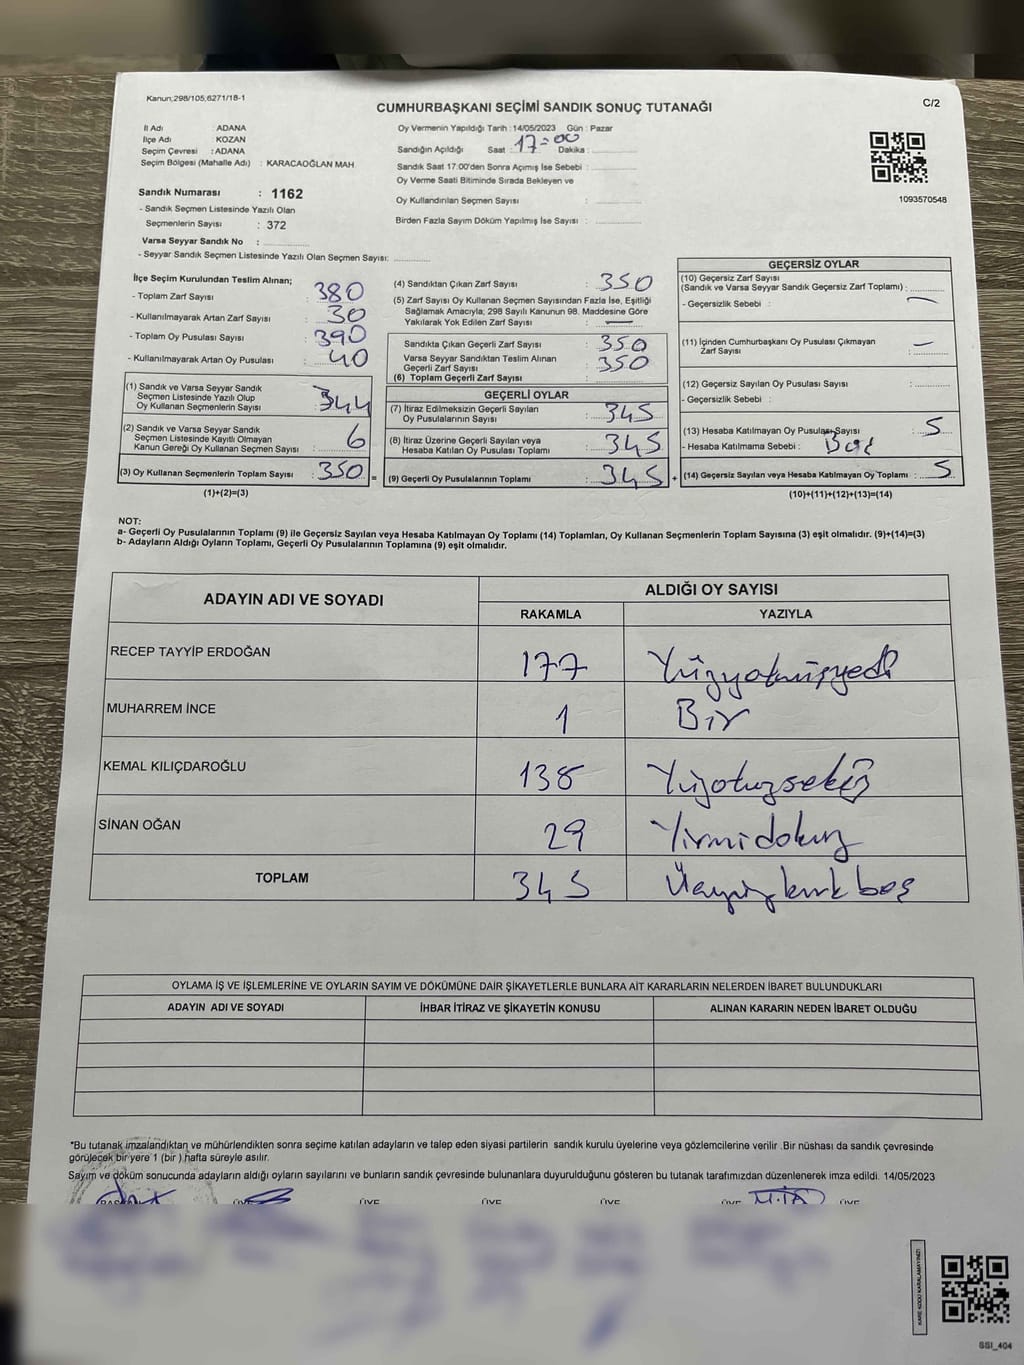 Kanun;298/105;6271/18-1
CUMHURBAŞKANI SEÇİMİ SANDIK SONUÇ TUTANAĞI
C/2
İl Adı : ADANA
İlçe Adı : KOZAN
Seçim Çevresi : ADANA
Seçim Bölgesi (Mahalle Adı) : KARACAOĞLAN MAH
Sandık Numarası : 1162
- Sandık Seçmen Listesinde Yazılı Olan
Seçmenlerin Sayısı : 372
Varsa Seyyar Sandık No :
- Seyyar Sandık Seçmen Listesinde Yazılı Olan Seçmen Sayısı:
Oy Vermenin Yapıldığı Tarih : 14/05/2023 Gün : Pazar
Sandığın Açıldığı Saat : 17=00 Dakika :
Sandık Saat 17:00'den Sonra Açımış İse Sebebi :
Oy Verme Saati Bitiminde Sırada Bekleyen ve
Oy Kullandırılan Seçmen Sayısı :
Birden Fazla Sayım Döküm Yapılmış İse Sayısı :
1093570548
İlçe Seçim Kurulundan Teslim Alınan;
- Toplam Zarf Sayısı : 380
- Kullanılmayarak Artan Zarf Sayısı : 30
- Toplam Oy Pusulası Sayısı : 390
- Kullanılmayarak Artan Oy Pusulası : 40
(1) Sandık ve Varsa Seyyar Sandık
Seçmen Listesinde Yazılı Olup
Oy Kullanan Seçmenlerin Sayısı : 344
(2) Sandık ve Varsa Seyyar Sandık
Seçmen Listesinde Kayıtlı Olmayan
Kanun Gereği Oy Kullanan Seçmen Sayısı : 6
(3) Oy Kullanan Seçmenlerin Toplam Sayısı : 350 =
(1)+(2)=(3)
(4) Sandıktan Çıkan Zarf Sayısı : 350
(5) Zarf Sayısı Oy Kullanan Seçmen Sayısından Fazla İse, Eşitliği
Sağlamak Amacıyla; 298 Sayılı Kanunun 98. Maddesine Göre
Yakılarak Yok Edilen Zarf Sayısı : —
Sandıkta Çıkan Geçerli Zarf Sayısı : 350
Varsa Seyyar Sandıktan Teslim Alınan
Geçerli Zarf Sayısı : 350
(6) Toplam Geçerli Zarf Sayısı :
GEÇERLİ OYLAR
(7) İtiraz Edilmeksizin Geçerli Sayılan
Oy Pusulalarının Sayısı : 345
(8) İtiraz Üzerine Geçerli Sayılan veya
Hesaba Katılan Oy Pusulası Toplamı : 345
(9) Geçerli Oy Pusulalarının Toplamı : 345 +
GEÇERSİZ OYLAR
(10) Geçersiz Zarf Sayısı
(Sandık ve Varsa Seyyar Sandık Geçersiz Zarf Toplamı) :
- Geçersizlik Sebebi : —
(11) İçinden Cumhurbaşkanı Oy Pusulası Çıkmayan
Zarf Sayısı : —
(12) Geçersiz Sayılan Oy Pusulası Sayısı :
- Geçersizlik Sebebi :
(13) Hesaba Katılmayan Oy Pusulası Sayısı : 5
- Hesaba Katılmama Sebebi :
(14) Geçersiz Sayılan veya Hesaba Katılmayan Oy Toplamı : 5
(10)+(11)+(12)+(13)=(14)
NOT:
a- Geçerli Oy Pusulalarının Toplamı (9) ile Geçersiz Sayılan veya Hesaba Katılmayan Oy Toplamı (14) Toplamları, Oy Kullanan Seçmenlerin Toplam Sayısına (3) eşit olmalıdır. (9)+(14)=(3)
b- Adayların Aldığı Oyların Toplamı, Geçerli Oy Pusulalarının Toplamına (9) eşit olmalıdır.
ADAYIN ADI VE SOYADI ALDIĞI OY SAYISI
RAKAMLA YAZIYLA
RECEP TAYYİP ERDOĞAN 177 Yüzyetmişyedi
MUHARREM İNCE 1 Bir
KEMAL KILIÇDAROĞLU 138 Yüzotuzsekiz
SİNAN OĞAN 29 Yirmidokuz
TOPLAM 345 Üçyüzkırk beş
OYLAMA İŞ VE İŞLEMLERİNE VE OYLARIN SAYIM VE DÖKÜMÜNE DAİR ŞİKAYETLERLE BUNLARA AİT KARARLARIN NELERDEN İBARET BULUNDUKLARI
ADAYIN ADI VE SOYADI İHBAR İTİRAZ VE ŞİKAYETİN KONUSU ALINAN KARARIN NEDEN İBARET OLDUĞU
*Bu tutanak imzalandıktan ve mühürlendikten sonra seçime katılan adayların ve talep eden siyasi partilerin sandık kurulu üyelerine veya gözlemcilerine verilir .Bir nüshası da sandık çevresinde
görülecek bir yere 1 (bir ) hafta süreyle asılır.
Sayım ve döküm sonucunda adayların aldığı oyların sayılarını ve bunların sandık çevresinde bulunanlara duyurulduğunu gösteren bu tutanak tarafımızdan düzenlenerek imza edildi. 14/05/2023
BAŞKAN ÜYE ÜYE ÜYE ÜYE ÜYE ÜYE
KARE KODU KARALAMAYINIZ!
SSI_404